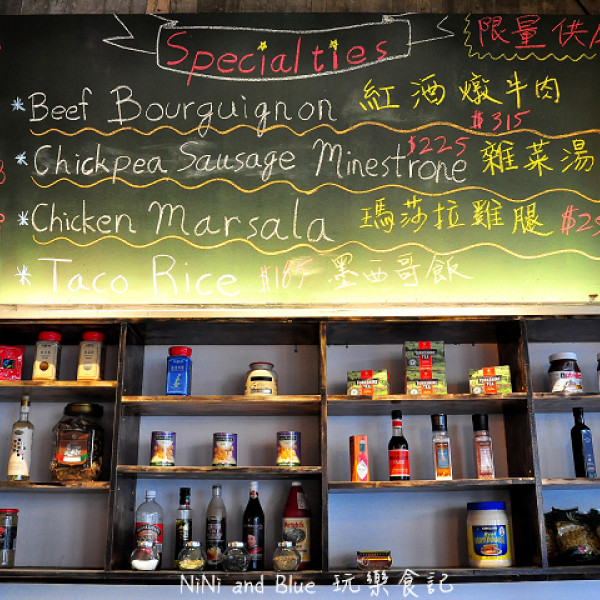 Specialties 限量供
*Beef Bourguignon 紅酒燉牛肉 $315
*Chickpea Sausage Minestrone $225 雜菜湯
*Chicken Marsala 瑪莎拉雞腿
*Taco Rice $185 墨西哥飯
NiNi and Blue 玩樂食記